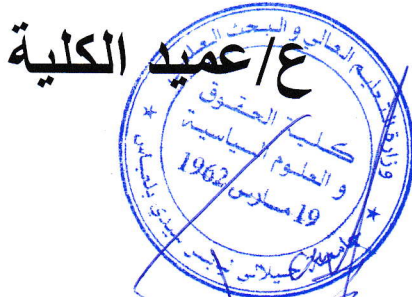 ع/عميد الكلية
وزارة التعليم العالي والبحث العلمي
كلية الحقوق
و العلوم السياسية
19 مارس 1962
جامعة جيلالي ليابس سيدي بلعباس